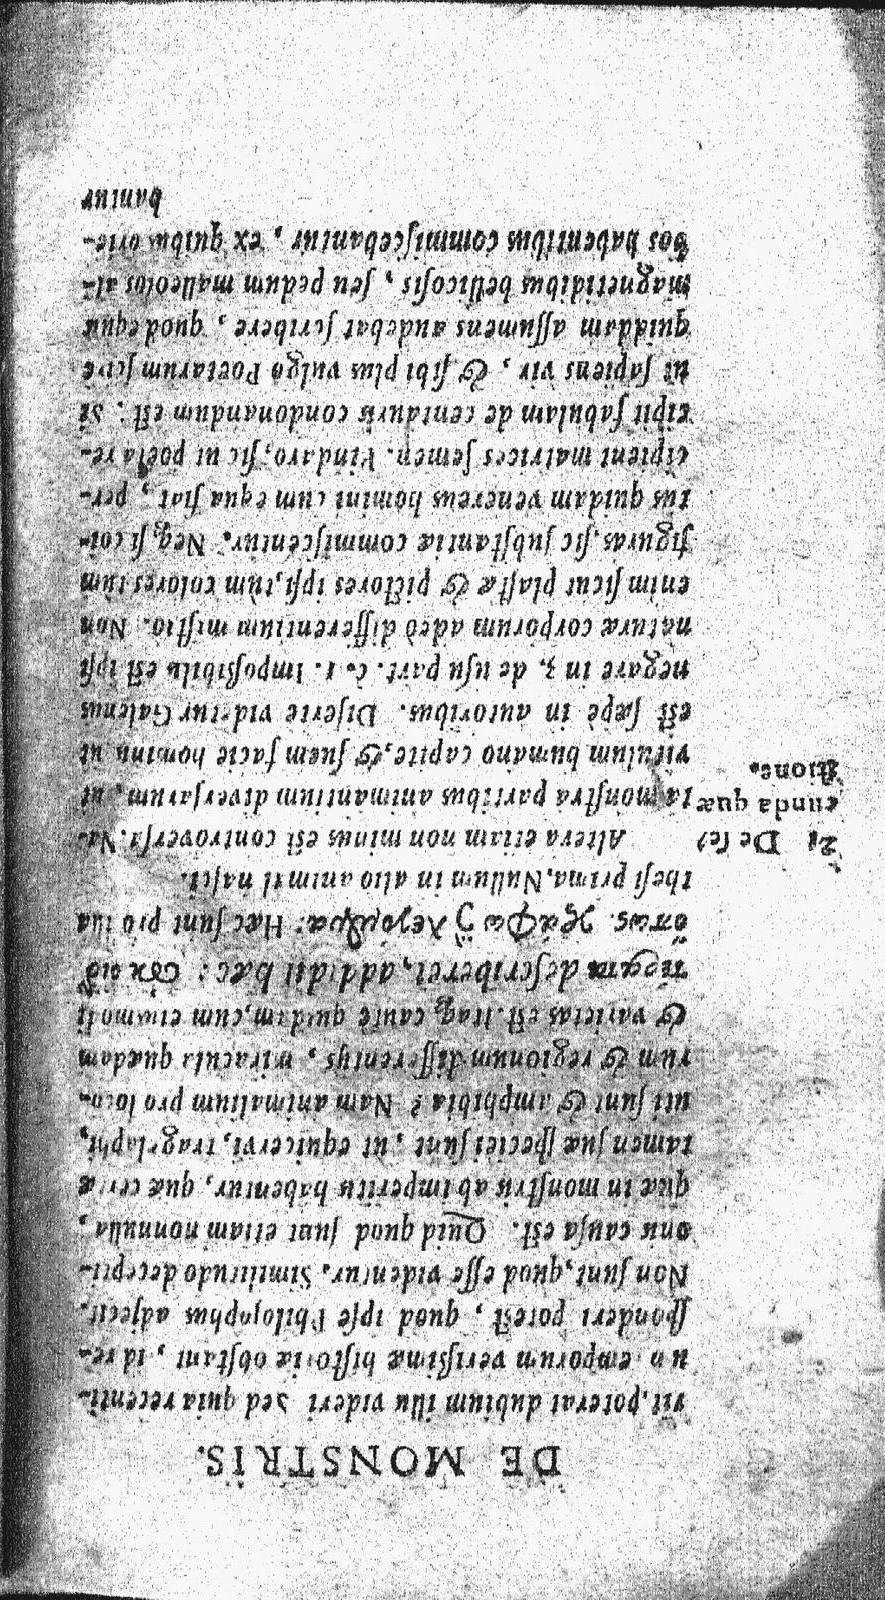 DE MONSTRIS.
rit, poterat dubium illis videri. Sed quia recenti-
um temporum verissimæ historiæ obstant, id re-
sponderi potest, quod ipse Philosophus adjecit.
Non sunt, quod esse videntur. Similitudo decepti-
onis causa est. Quid quod sunt etiam nonnulla,
quæ in monstris ab imperitis habentur, quæ certæ
tamen suæ speciei sunt, ut equicervi, tragelaphi,
uti sunt & amphibia? Nam animalium pro loco-
rum & regionum differentijs, miracula quædam
& varietas est. Itaq; cautè quidam, cum eiusmodi
describeret, addidit hæc:
ὅπως. γράφω λεγόμενα: Hæc sunt pro illa
thesi prima, Nullum in alio animal nasci.
Altera etiam non minus est controversa. Na-
ta monstra partibus animantium diversarum, ut
vitulum humano capite, & suem facie hominis ut
est sæpè in autoribus. Disertè videtur Galenus
negare in 3. de usu part. c. 1. Impossibilis est ipsi
naturæ corporum adeò differentium mistio. Non
enim sicut plastæ & pictores ipsi, tùm colores tùm
figuras, sic substantiæ commiscentur. Neq; si coi-
tus quidam venereus homini cum equa fiat, per-
cipient matrices semen. Pindaro, sic ut poëta re-
cipit fabulam de centauris condonandum est: Si
ut sapiens vir, & sibi plus vulgo Poetarum scire
quiddam assumens audebat scribere, quod equis
magnetidibus bellicosis, seu pedum malleolos al-
bos habentibus commiscebantur, ex quibus orie-
bantur
2. De se-
cunda quæ-
stione.